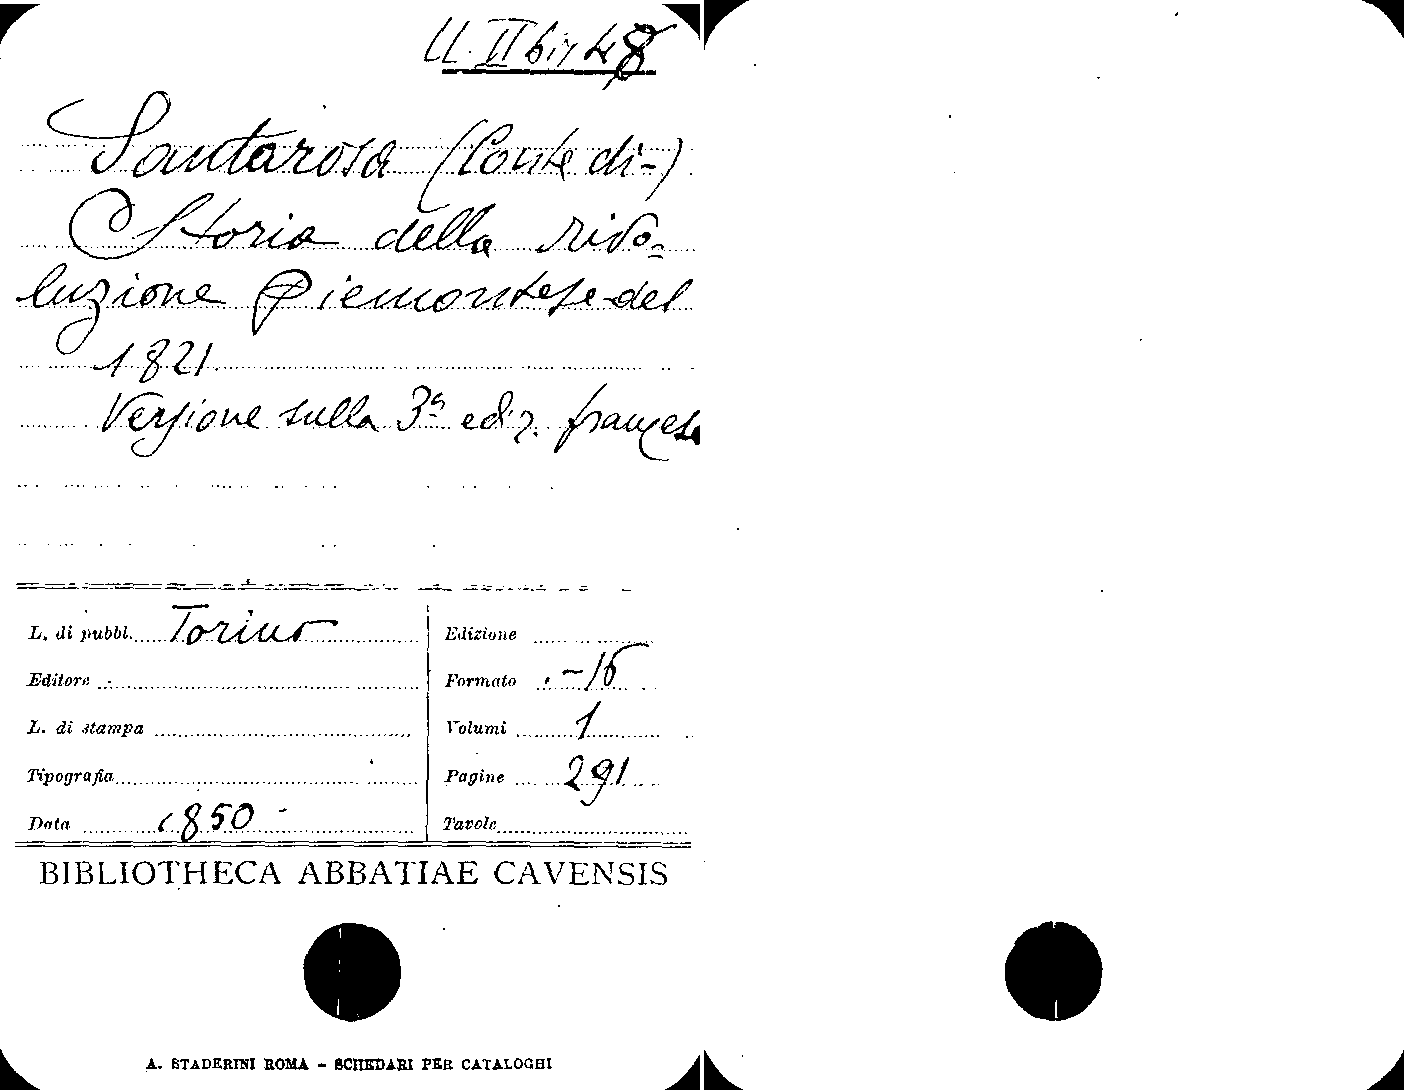 II bis 48
Santarosa (Conte di-)
Storia della rivo=
luzione Piemontese del
1821
Versione sulla 3ª ediz. francese
L. di pubbl. Torino
Edizione
Editore
Formato -16
L. di stampa
Volumi 1
Tipografia
Pagine 291
Data 1850 -
Tavole
BIBLIOTHECA ABBATIAE CAVENSIS
A. STADERINI ROMA - SCHEDARI PER CATALOGHI